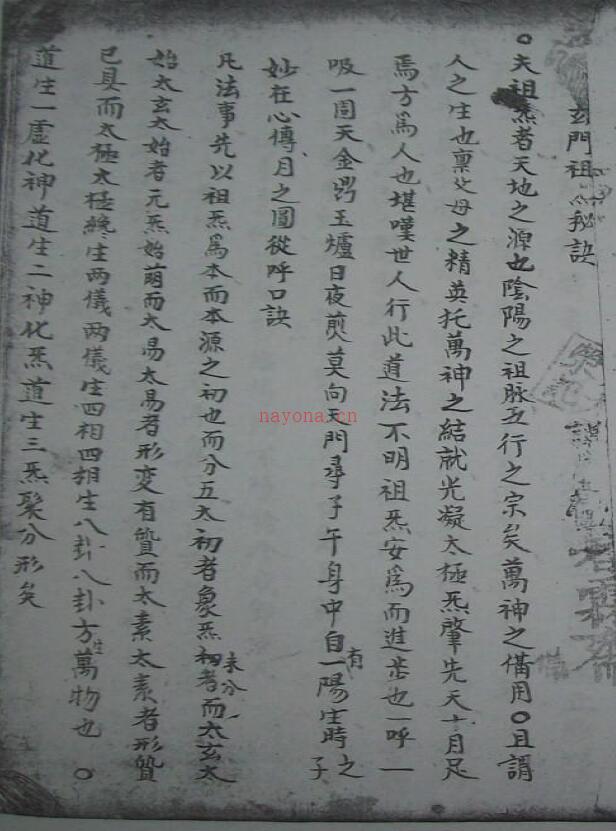 玄門祖炁秘訣
○夫祖炁者天地之源也陰陽之祖脉五行之宗矣萬神之俻用○且謂
人之生也禀父母之精英托萬神之結就光凝太極炁肇先天十月足
焉方爲人也堪嘆世人行此道法不明祖炁安爲而進步也一呼一
吸一周天金鼎玉爐日夜煎莫向天門尋子午身中自有一陽生時之子
妙在心傳月之圓從呼口訣
凡法事先以祖炁爲本而本源之初也而分五太初者象炁初者未分而太玄太
始太玄太始者元炁始萌而太易太易者形变有質而太素太素者形質
已具而太極太極終生两儀两儀生四相四相生八卦八卦方生萬物也○
道生一虚化神道生二神化炁道生三炁髪分形矣
nayona.cn